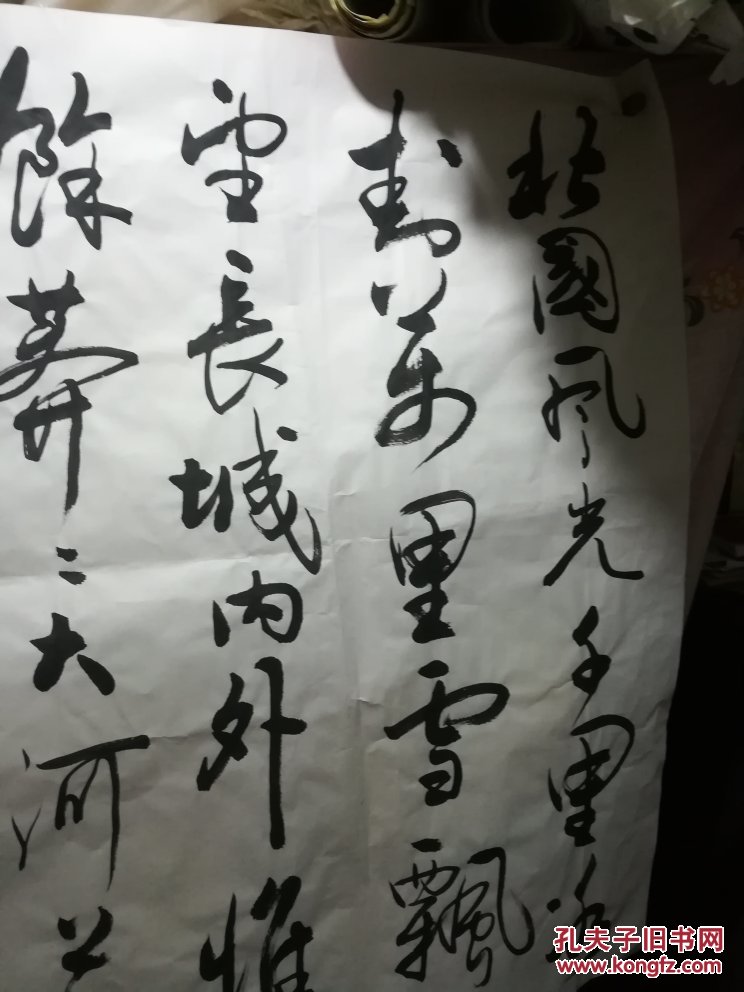 北國風光千里冰
封萬里雪飄
望長城内外惟
餘莽〻大河上
孔夫子旧书网
www.kongfz.com